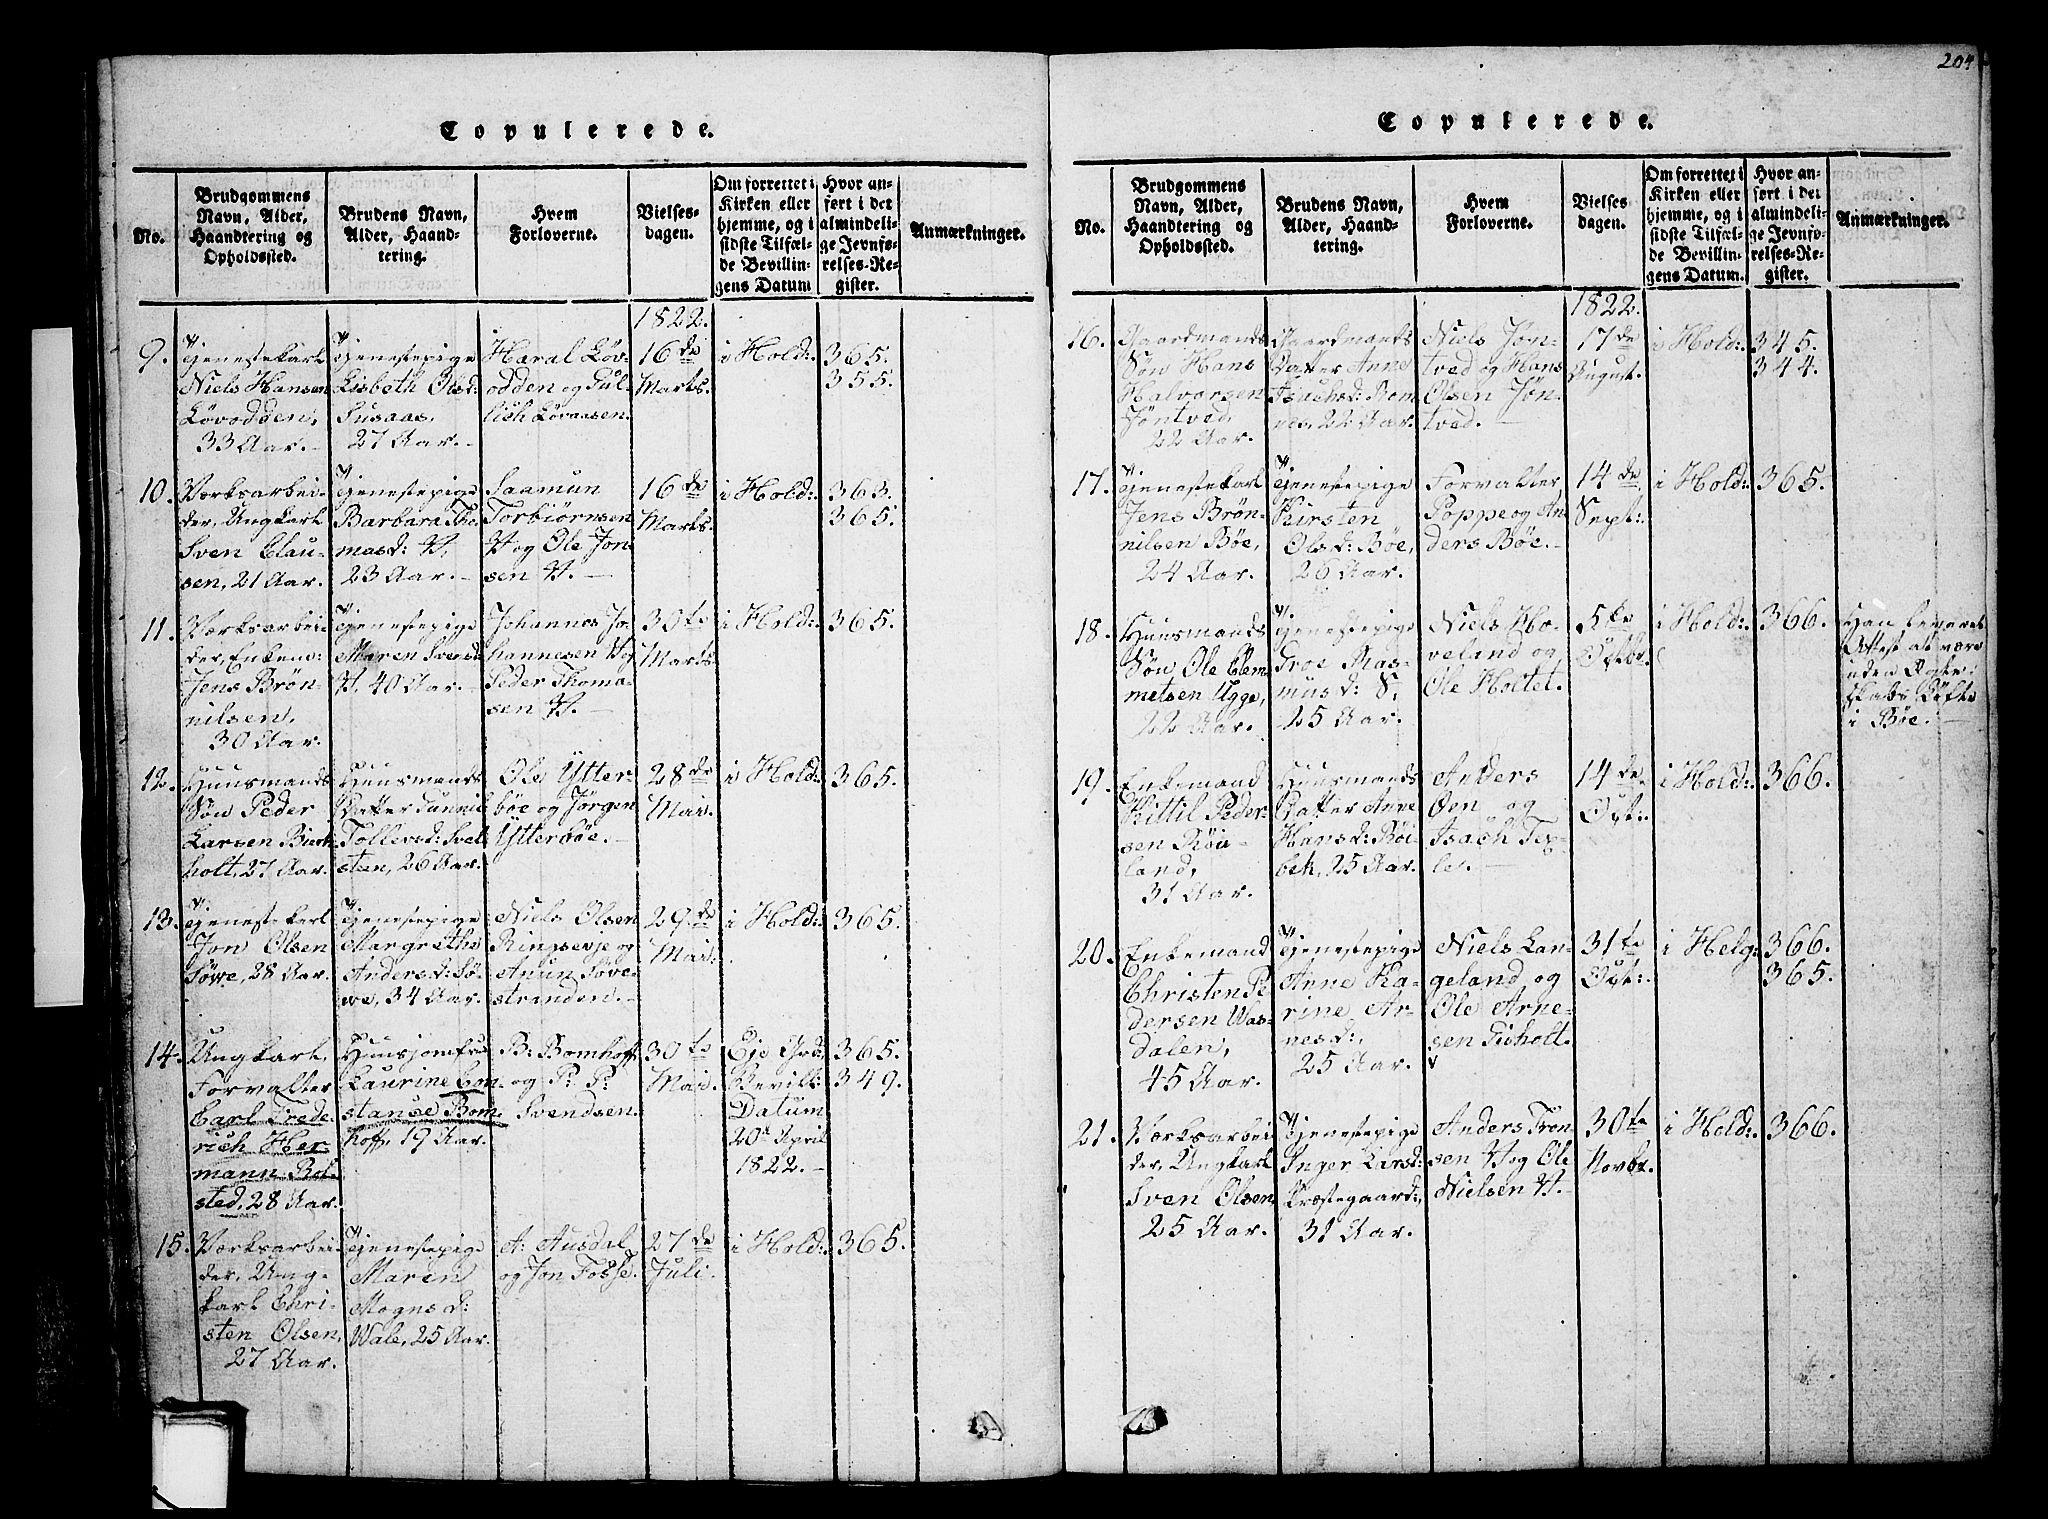 204
Copulerede.
No.
Brudgommens
Navn, Alder,
Haandtering og
Opholdssted.
Brudens Navn,
Alder, Haand-
tering.
Hvem
Forloverne.
Vielses-
dagen.
Om forrettet i
Kirken eller
hjemme, og i
sidste Tilfæl-
de Bevillin-
gens Datum
Hvor an-
ført i det
almindeli-
ge Jevnfø-
relses-Re-
gister.
Anmærkninger.
1822.
9.
Tjenestekarl
Niels Hansen
Løvodden,
33 Aar.
Tjenestepige
Lisbeth Olsd:
Susaas,
27 Aar.
Haral Løv-
odden og Gul-
lich Løvaasen.
16de
Marts.
i Hold:
365.
355.
10.
Værksarbei-
der, Ungkarl
Sven Clau-
sen, 21 Aar.
Tjenestepige
Barbara Tho-
masd: V.
23 Aar.
Saamun
Torbiørnsen
V og Ole Jon-
sen V.
16de
Marts.
i Hold:
363.
365.
11.
Værksarbei-
der, Enkem:
Jens Brøn-
nilsen,
30 Aar.
Tjenestepige
Maren Svensd:
V. 40 Aar.
Johannes Jo-
hannesen V og
Peder Thoma-
sen V.
30te
Marts.
i Hold:
365.
12.
Huusmands
Søn Peder
Larsen Bierk-
holt, 27 Aar.
Huusmands
Datter Gunnil
Tollevsd: Svel-
sten, 26 Aar.
Ole Ytter-
bøe og Jørgen
Ytterbøe.
28de
Mai.
i Hold:
365.
13.
Tjenestekarl
Jon Olsen
Søwe, 28 Aar.
Tjenestepige
Margrethe
Andersd: Sø-
we, 34 Aar.
Niels Olsen
Ringsevje og
Anun Søve-
stranden.
29de
Mai.
i Hold:
365.
14.
Ungkarl,
Forvalter
Carl Frede-
rich Her-
mann Bol-
sted, 28 Aar.
Huusjomfru
Laurine Con-
stanse Bom-
hoff, 19 Aar.
B: Bomhoff
og P: P:
Svendsen.
30te
Mai.
Bevill:
Datum
20de April
1822.
365.
349.
15.
Værksarbei-
der, Ung-
karl Chri-
sten Olsen,
27 Aar.
Tjenestepige
Maren
Mogns d:
Wale, 25 Aar.
A: Ausdal
og Jon Fosse.
27de
Juli.
i Hold:
365.
Copulerede.
No.
Brudgommens
Navn, Alder,
Haandtering og
Opholdssted.
Brudens Navn,
Alder, Haand-
tering.
Hvem
Forloverne.
Vielses-
dagen.
Om forrettet i
Kirken eller
hjemme, og i
sidste Tilfæl-
de Bevillin-
gens Datum.
Hvor an-
ført i det
almindeli-
ge Jevnfø-
relses-Re-
gister.
Anmærkninger.
1822.
16.
Gaardmands
Søn Hans
Halvorsen
Jøntved,
22 Aar.
Gaardmands
Datter Anne
Isachsd: Rom-
nes, 22 Aar.
Niels Jøn-
tved og Hans
Olsen Jøn-
tved.
17de
August.
i Hold:
345.
344.
17.
Tjenestekarl
Jens Brøn-
nilsen Bøe,
24 Aar.
Tjenestepige
Kirsten
Olsd: Bøe,
26 Aar.
Forvalter
Poppe og An-
ders Bøe.
14de
Sept:
i Hold:
365.
18.
Huusmands
Søn Ole Clem-
metsen Ugge,
22 Aar.
Tjenestepige
Groe Ras-
musd: S.
25 Aar.
Niels Ho-
veland og
Ole Holtet.
5te
Octbr.
i Hold:
366.
Han leveret
Attest at være
uden Egte-
skabs Løfte
i Bøe.
19.
Enkemand
Kittil Peder-
sen Røi-
land,
31 Aar.
Huusmands
Datter Anne
Hansd: Bøi-
bek, 25 Aar.
Anders
Øen og
Isach Tex-
le.
14de
Oct:
i Hold:
366.
20.
Enkemand
Christen Pe-
dersen Was-
dalen,
45 Aar.
Tjenestepige
Anne Ka-
rine Ar-
nesd:,
25 Aar.
Niels Lan-
geland og
Ole Arne-
sen Gisholt.
31te
Oct:
i Helg:
366.
365.
21.
Værksarbei-
der, Ungkarl
Sven Olsen,
25 Aar.
Tjenestepige
Inger Larsd:
Præstegaard:,
31 Aar.
Anders Tron-
sen V og Ole
Nielsen V.
30te
Novbr.
i Hold:
366.